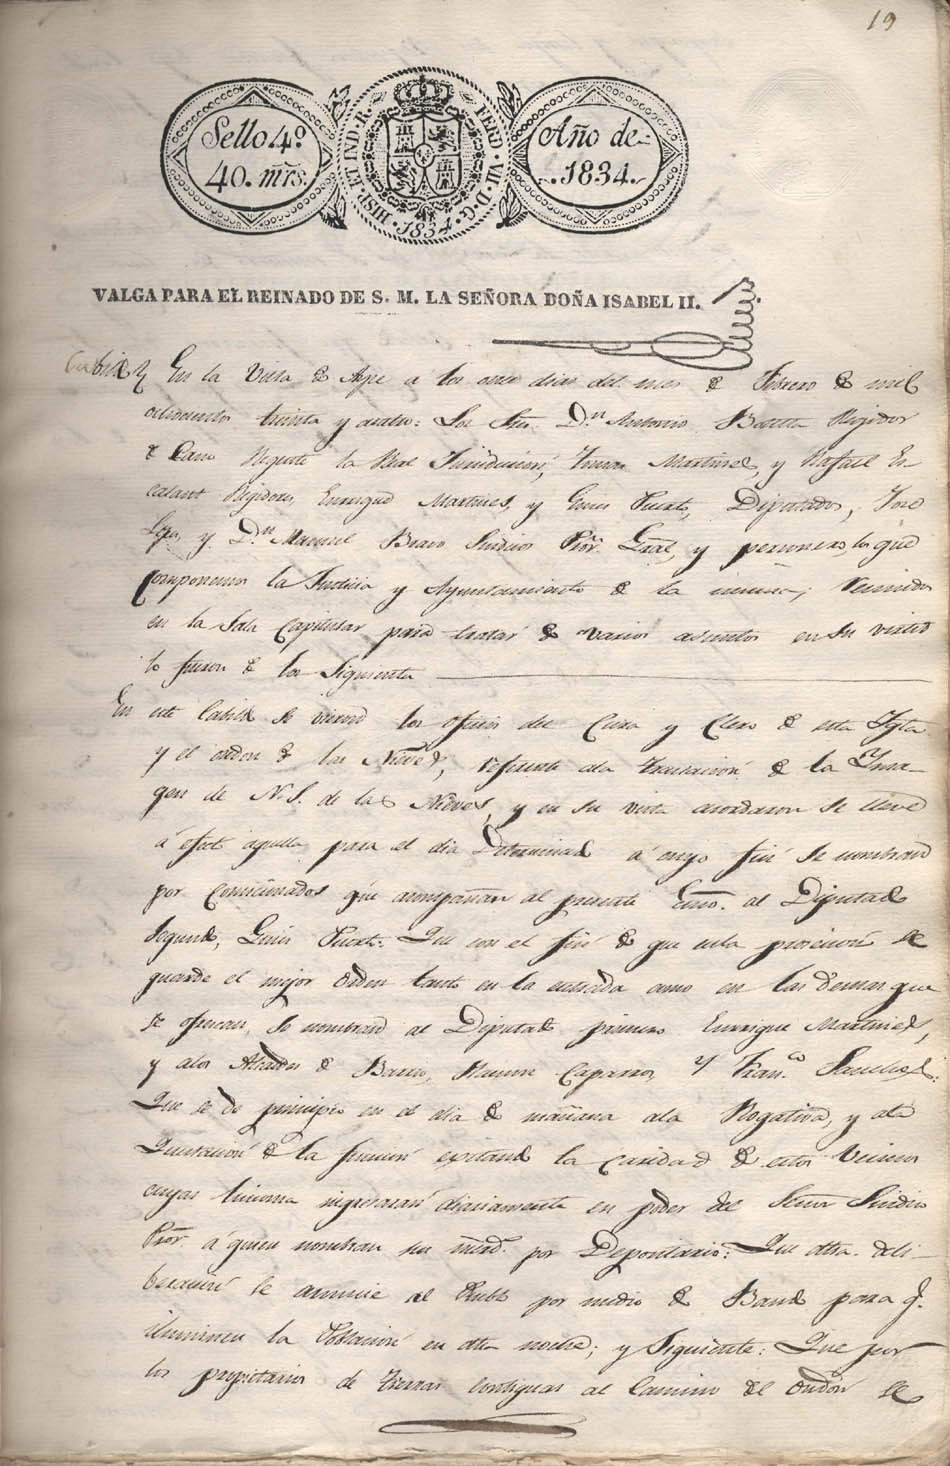 19
Sello 4º
40. mrs.
HISP. ET IND. R. FERD. VII. D. G.
1834.
Año de
1834.
VALGA PARA EL REINADO DE S. M. LA SEÑORA DOÑA ISABEL II.
Cabildo En la Villa de Aspe á los once dias del mes de Febrero de mil
ochocientos treinta y cuatro: Los Sres. Dn Antonio Regidor
de Cano Regente la Real Jurisdicion, Martinez, y Rafael Es-
colant Regidores, Enrrique Martinez, y Gines Puerto, Diputados, Jose
y Dn Manuel Bravo Sindico Pror. Gral, y personero, los que
componemos la Justicia y Ayuntamiento de la misma; Reunidos
en la Sala Capitular para tratar de varios asuntos en su virtud
lo fueron de los siguiente
En este Cabildo se vieron los oficios del Cura y Clero de esta Iglª
y el de las Nieves, referente ala traslacion de la Ima-
gen de N. S. de las Nieves, y en su vista acordaron se lleve
á efecto aquella para el dia determinado á cuyo fin se nombraron
por comicionados que acompañan al presente Esno. al Diputado
segundo, Gines Puerto: Que con el fin de que en la procecion se
guarde el mejor orden tanto en la entrada como en las demas que
se ofrecan, se nombraron al Diputado primero Enrrique Martinez,
y alos Alcaldes de Barrio, Ramon Caparros, y Franco. Sanchez:
Que se de principio en el dia de mañana ala Rogativa, y ala
de la funcion exitando la caridad de estos Vecinos
cuyas limosna ingresaran diariamente en poder del Señor Sindico
Pror. á quien nombran sus mrds. por Depositario: Que dha. deli-
beracion se anuncie al Publo por medio de Bando para q.
iluminen la Poblacion en dha noche; y siguiente: Que por
los propietarios de tierras contiguas al Camino del Ondon se